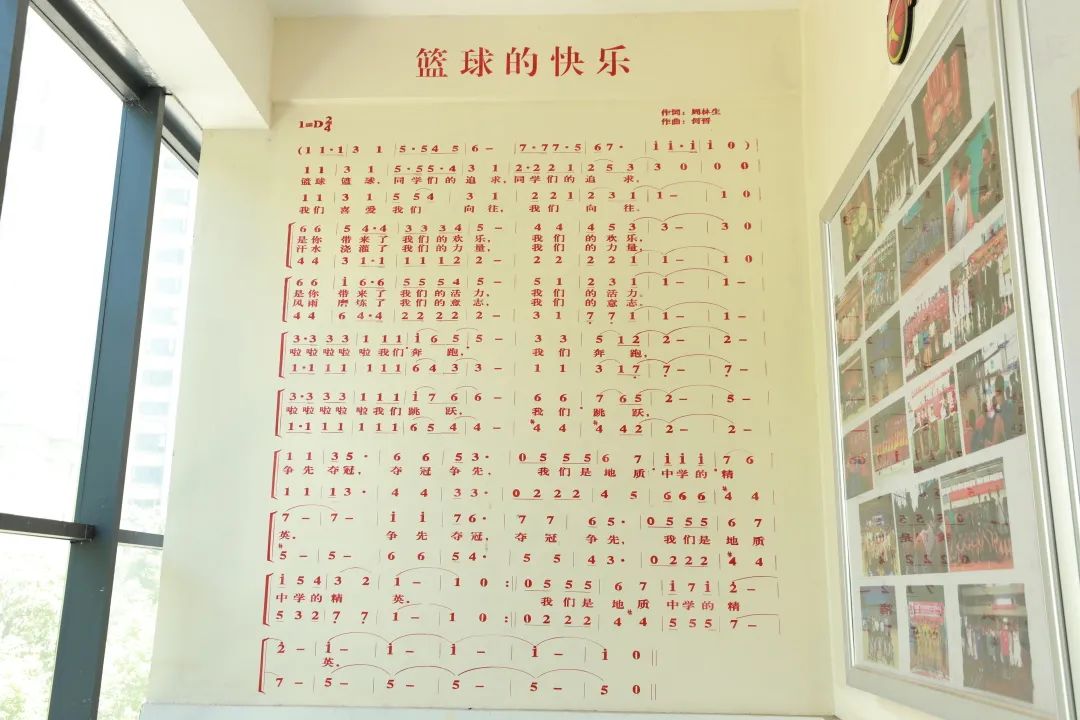 篮球的快乐
1=D 2/4
作词：周林生
作曲：何晋
(1 1·1 | 3 1 | 5·5 4 5 | 6 - | 7·7 7·5 | 6 7· | i i·i | i 0)
1 1 | 3 1 | 5·5 5·4 | 3 1 | 2·2 2 1 | 2 5 3 | 3 0 | 0 0
篮球 篮球，同学们的 追求，同学们的 追 求，
1 1 | 3 1 | 5 5 4 | 3 1 | 2 2 1 | 2 3 1 | 1 - | 1 0
我们 喜爱 我们 向往，我们 向往。
6 6 | 5 4·4 | 3 3 3 4 | 5 - | 4 4 | 4 5 3 | 3 - | 3 0
是你 带来了 我们的欢乐，我们 的欢乐，
汗水 浇灌了 我们的力量，我们 的力量，
4 4 | 3 1·1 | 1 1 1 2 | 2 - | 2 2 | 2 2 1 | 1 - | 1 0
6 6 | i 6·6 | 5 5 5 4 | 5 - | 5 1 | 2 3 1 | 1 - | 1 -
是你 带来了 我们的活力，我们 的活力。
风雨 磨炼了 我们的意志，我们 的意志。
4 4 | 6 4·4 | 2 2 2 2 | 2 - | 3 1 | 7 7 1 | 1 - | 1 -
3·3 3 3 | 1 1 1 | i 6 5 | 5 - | 3 3 | 5 1 2 | 2 - | 2 -
啦啦啦啦啦我们 奔 跑，我们 奔 跑，
1·1 1 1 | 1 1 1 | 6 4 3 | 3 - | 1 1 | 3 1 7 | 7 - | 7 -
3·3 3 3 | 1 1 1 | i 7 6 | 6 - | 6 6 | 7 6 5 | 2 - | 5 -
啦啦啦啦啦我们 跳 跃，我们 跳 跃，
1·1 1 1 | 1 1 1 | 6 5 4 | 4 - | #4 4 | #4 4 2 | 2 - | 2 -
1 1 | 3 5· | 6 6 | 5 3· | 0 5 5 5 | 6 7 | i i i | 7 6
争先夺冠，夺冠争先，我们是 地质 中学的 精
1 1 | 1 3· | 4 4 | 3 3· | 0 2 2 2 | 4 5 | 6 6 6 | #4 4
7 - | 7 - | i i | 7 6· | 7 7 | 6 5· | 0 5 5 5 | 6 7
英。争先夺冠，夺冠争先，我们是 地质
#5 - | 5 - | 6 6 | 5 4· | 5 5 | 4 3· | 0 2 2 2 | #4 4
i 5 4 | 3 2 | 1 - | 1 0 :‖ 0 5 5 5 | 6 7 | i 7 i | 2 -
中学的 精 英。我们是 地质 中学的 精
5 3 2 | 7 7 | 1 - | 1 0 :‖ 0 2 2 2 | 4 #4 | 5 5 5 | 7 -
2 - | i - | i - | i - | i - | i 0 ‖
英。
7 - | 5 - | 5 - | 5 - | 5 - | 5 0 ‖